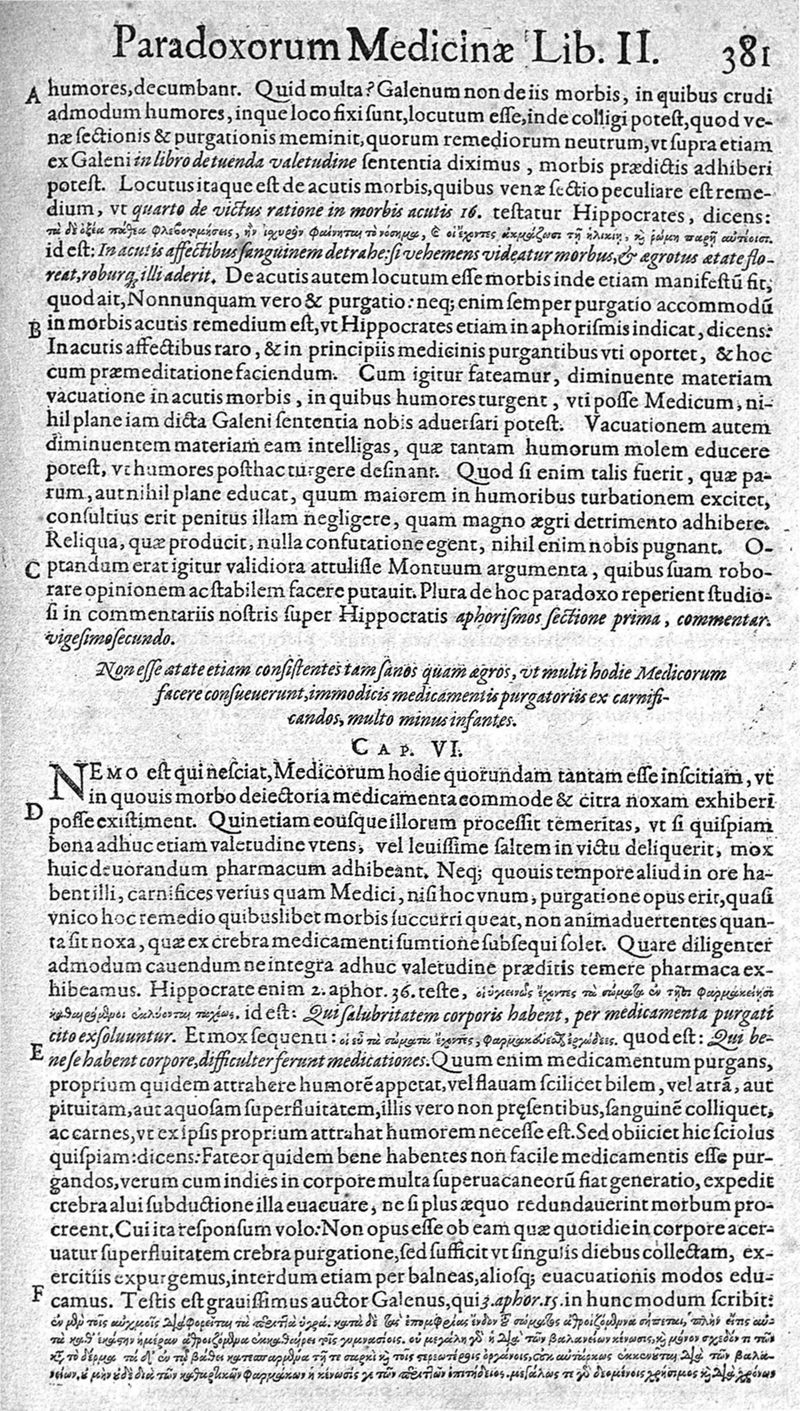 Paradoxorum Medicinæ Lib. II. 381
A humores, decumbant. Quid multa? Galenum non de iis morbis, in quibus crudi
admodum humores, inque loco fixi sunt, locutum esse, inde colligi potest, quod ve-
næ sectionis & purgationis meminit, quorum remediorum neutrum, vt supra etiam
ex Galeni in libro de tuenda valetudine sententia diximus, morbis prædictis adhiberi
potest. Locutus itaque est de acutis morbis, quibus venæ sectio peculiare est reme-
dium, vt quarto de victus ratione in morbis acutis 16. testatur Hippocrates, dicens:
τὰ δὲ ὀξέα πάθεα φλεβοτομήσεις, ἢν ἰσχυρὸν φαίνηται τὸ νόσημα, ϗ οἱ ἔχοντες ἀκμάζωσι τῇ ἡλικίῃ, ϗ ῥώμη παρῇ αὐτέοισι.
id est: In acutis affectibus sanguinem detrahe: si vehemens videatur morbus, & ægrotus ætate flo-
reat, roburq; illi aderit. De acutis autem locutum esse morbis inde etiam manifestū fit,
quod ait, Nonnunquam vero & purgatio: neq; enim semper purgatio accommodū
B in morbis acutis remedium est, vt Hippocrates etiam in aphorismis indicat, dicens:
In acutis affectibus raro, & in principiis medicinis purgantibus vti oportet, & hoc
cum præmeditatione faciendum. Cum igitur fateamur, diminuente materiam
vacuatione in acutis morbis, in quibus humores turgent, vti posse Medicum, ni-
hil plane iam dicta Galeni sententia nobis aduersari potest. Vacuationem autem
diminuentem materiam eam intelligas, quæ tantam humorum molem educere
potest, vt humores posthac turgere desinant. Quod si enim talis fuerit, quæ pa-
rum, aut nihil plane educat, quum maiorem in humoribus turbationem excitet,
consultius erit penitus illam negligere, quam magno ægri detrimento adhibere.
Reliqua, quæ producit, nulla confutatione egent, nihil enim nobis pugnant. O-
C ptandum erat igitur validiora attulisse Montuum argumenta, quibus suam robo-
rare opinionem ac stabilem facere putauit. Plura de hoc paradoxo reperient studio-
si in commentariis nostris super Hippocratis aphorismos sectione prima, commentar.
vigesimosecundo.
Non esse ætate etiam consistentes tam sanos quam ægros, vt multi hodie Medicorum
facere consueuerunt, immodicis medicamentis purgatoriis ex carnifi-
candos, multo minus infantes.
CAP. VI.
NEMO est qui nesciat, Medicorum hodie quorundam tantam esse inscitiam, vt
D in quouis morbo deiectoria medicamenta commode & citra noxam exhiberi
posse existiment. Quinetiam eousque illorum processit temeritas, vt si quispiam
bona adhuc etiam valetudine vtens, vel leuissime saltem in victu deliquerit, mox
huic deuorandum pharmacum adhibeant. Neq; quouis tempore aliud in ore ha-
bent illi, carnifices verius quam Medici, nisi hoc vnum, purgatione opus erit, quasi
vnico hoc remedio quibuslibet morbis succurri queat, non animaduertentes quan-
ta sit noxa, quæ ex crebra medicamenti sumtione subsequi solet. Quare diligenter
admodum cauendum ne integra adhuc valetudine præditis temere pharmaca ex-
hibeamus. Hippocrate enim 2. aphor. 36. teste, οἱ ὑγιεινῶς ἔχοντες τὰ σώματα ἐν τῇσι φαρμακείῃσι
καθαιρόμενοι ἐκλύονται ταχέως. id est: Qui salubritatem corporis habent, per medicamenta purgati
cito exsoluuntur. Et mox sequenti: οἱ εὖ τὰ σώματα ἔχοντες, φαρμακεύεσθαι ἐργώδεις. quod est: Qui be-
E ne se habent corpore, difficulter ferunt medicationes. Quum enim medicamentum purgans,
proprium quidem attrahere humorē appetat, vel flauam scilicet bilem, vel atrā, aut
pituitam, aut aquosam superfluitatem, illis vero non pręsentibus, sanguinē colliquet,
ac carnes, vt ex ipsis proprium attrahat humorem necesse est. Sed obiiciet hic sciolus
quispiam: dicens: Fateor quidem bene habentes non facile medicamentis esse pur-
gandos, verum cum indies in corpore multa superuacaneorū fiat generatio, expedit
crebra alui subductione illa euacuare, ne si plus æquo redundauerint morbum pro-
creent. Cui ita responsum volo: Non opus esse ob eam quæ quotidie in corpore acer-
uatur superfluitatem crebra purgatione, sed sufficit vt singulis diebus collectam, ex-
ercitiis expurgemus, interdum etiam per balneas, aliosq; euacuationis modos edu-
F camus. Testis est grauissimus auctor Galenus, qui 3. aphor. 15. in hunc modum scribit: